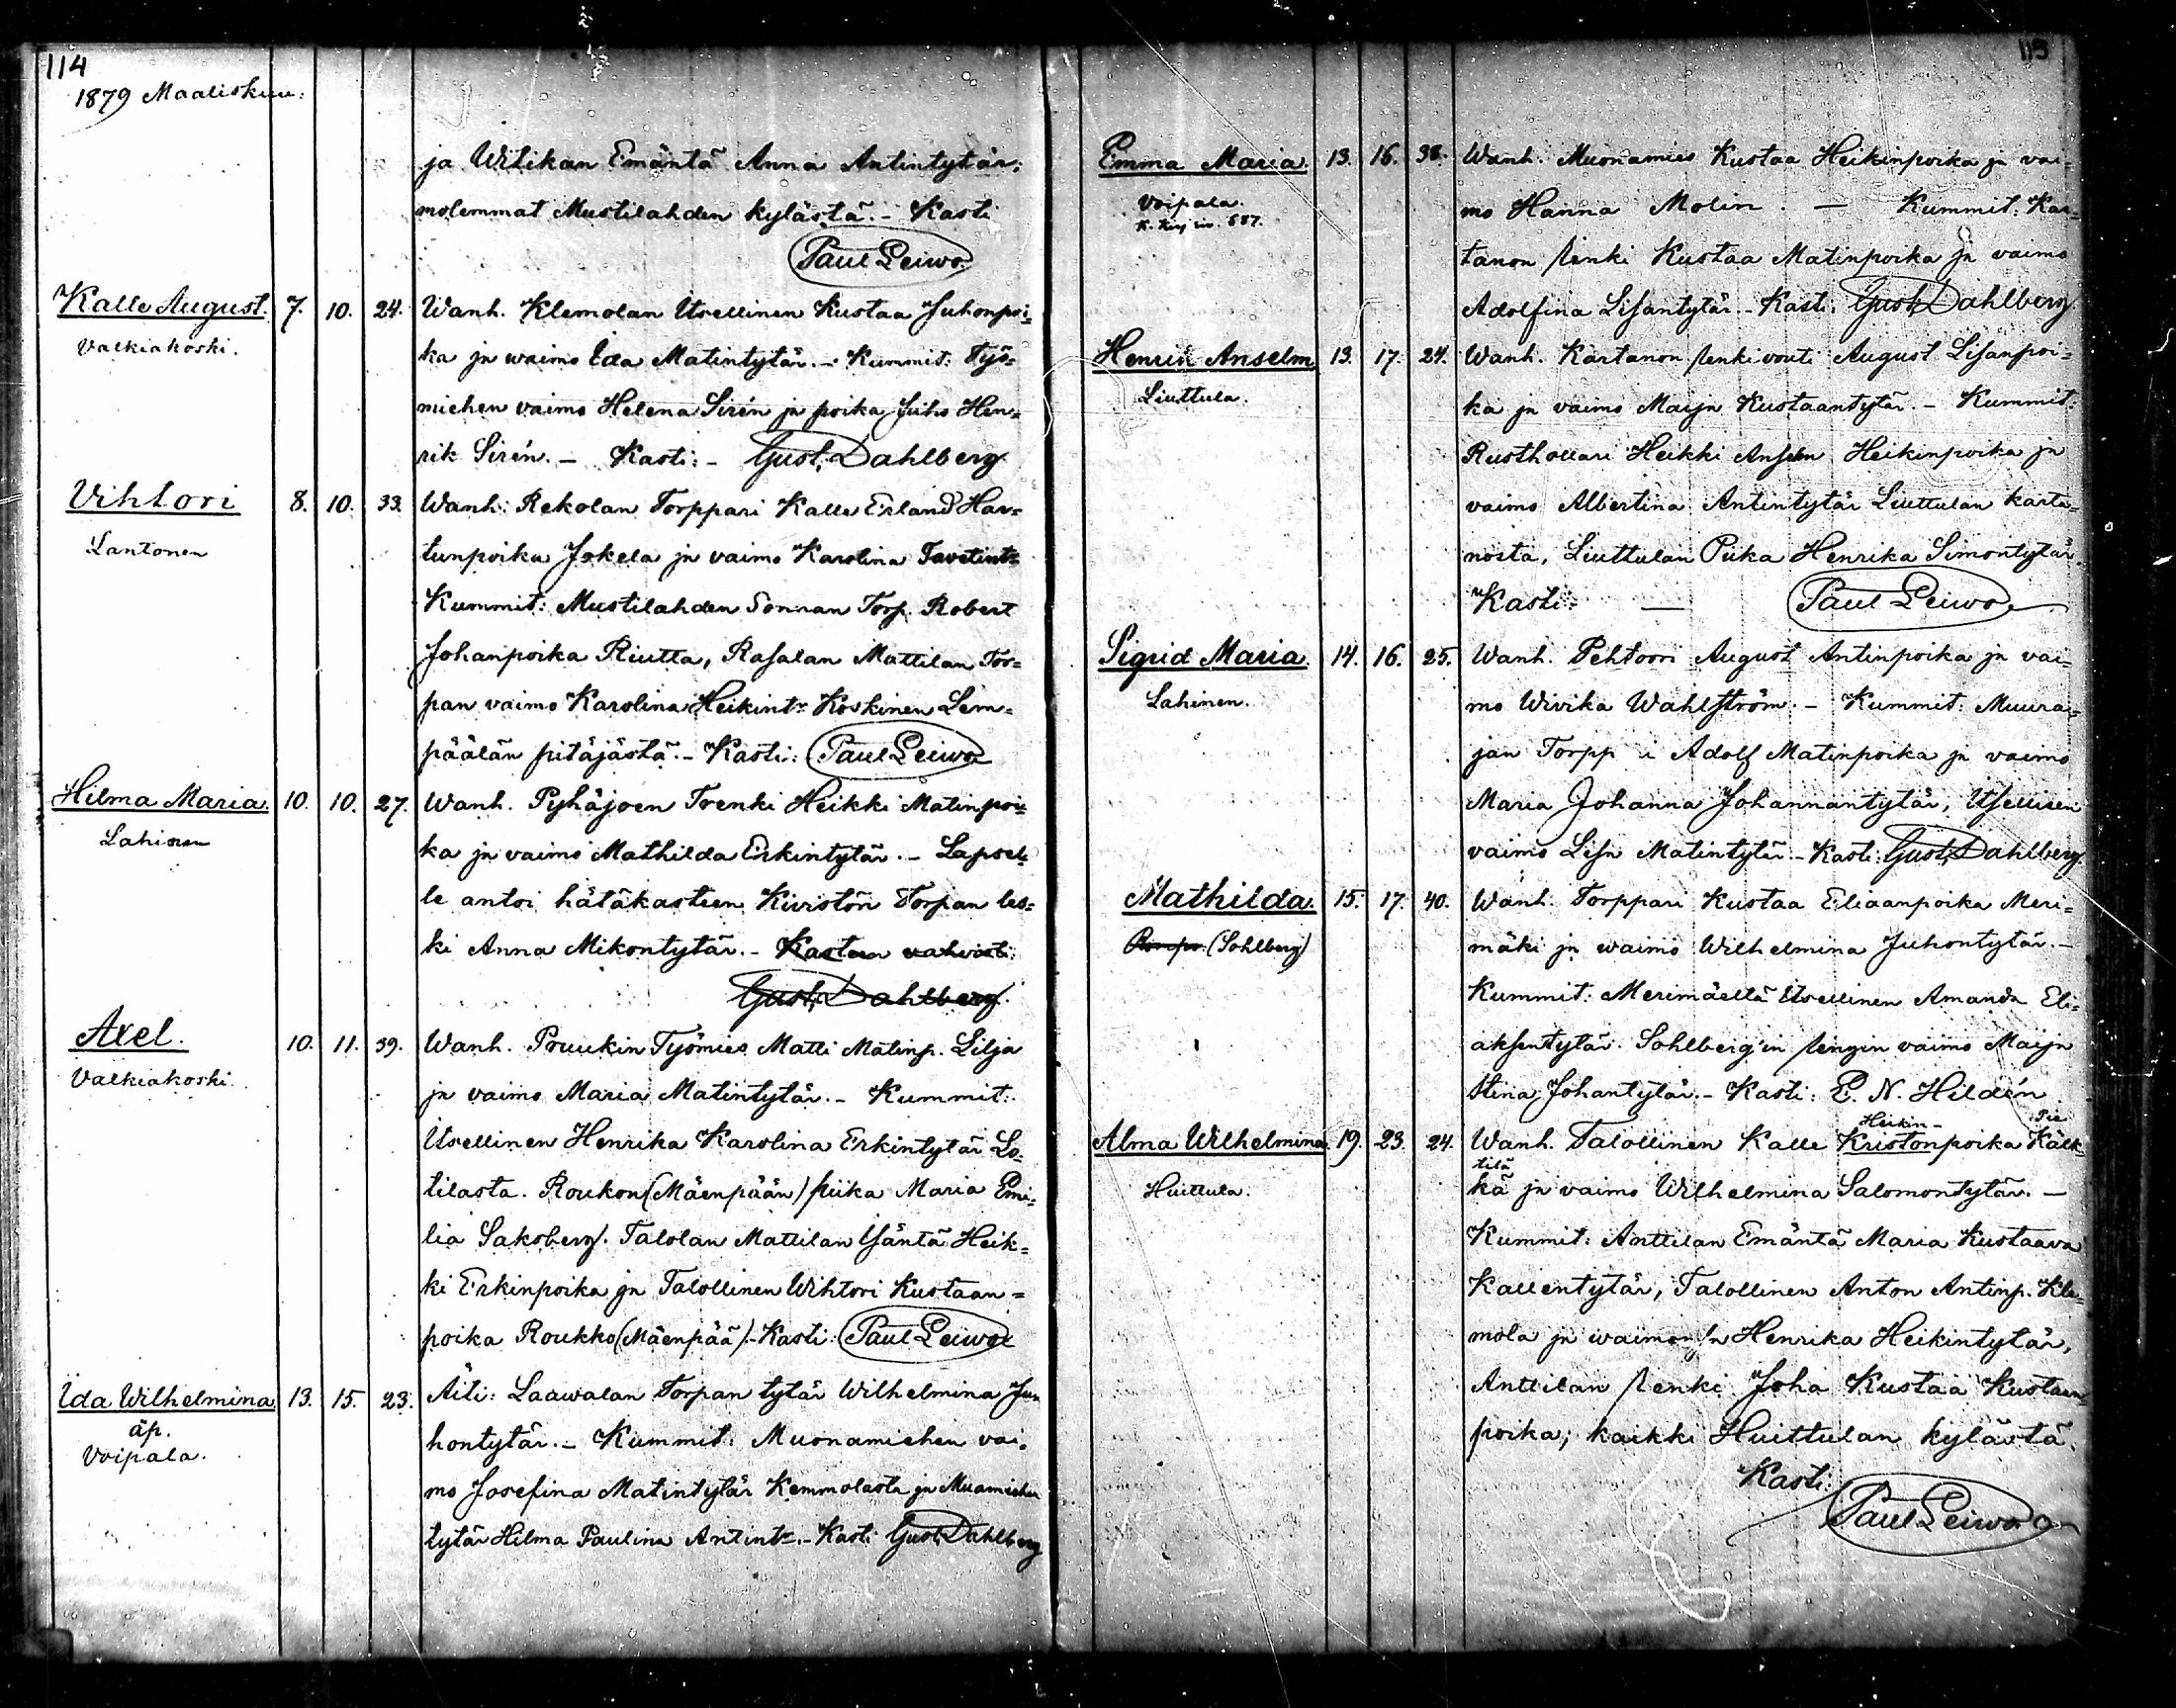 114
1879 Maaliskuu:
ja Witikan Emäntä Anna Antintytär,
molemmat Mustilahden kylästä. - Kasti
Paul Leiwo
Kalle August. 7. 10. 24. Wanh. Klemolan Itsellinen Kustaa Juhonpoi=
Valkiakoski. ka ja waimo Ida Matintytär. - Kummit: Työ=
miehen vaimo Helena Sirén ja poika Juho Hen=
rik Sirén. - Kasti: - Gust. Dahlberg
Vihtori 8. 10. 33. Wanh: Rekolan Torppari Kalle Erland Har=
Lantonen tunpoika Jokela ja vaimo Karolina
Kummit: Mustilahden Sonnan Torp. Robert
Johanpoika Riutta, Rasalan Mattilan Tor=
pan vaimo Karolina Heikintr Koskinen Lem=
päälän pitäjästä. - Kasti: Paul Leiwo
Hilma Maria. 10. 10. 27. Wanh. Pyhäjoen Trenki Heikki Matinpoi=
Lahinen ka ja vaimo Mathilda Erkintytär. - Lapsel=
le antoi hätäkasteen Kivistön Torpan les=
ki Anna Mikontytär. - Kasteen vahvisti:
Gust. Dahlberg
Axel. 10. 11. 39. Wanh. Pruukin Työmies Matti Matinp. Lilja
Valkiakoski. ja vaimo Maria Matintytär. - Kummit:
Itsellinen Henrika Karolina Erkintytär Lo=
tilasta. Roukon (Mäenpään) piika Maria Emi=
lia Saksberg. Talolan Mattilan Isäntä Heik=
ki Erkinpoika ja Talollinen Wihtori Kustaan=
poika Roukko (Mäenpää) - Kasti: Paul Leiwo
Ida Wilhelmina 13. 15. 23. Äiti: Laawalan Torpan tytär Wilhelmina Ju=
äp. hontytär. - Kummit: Muonamiehen vai=
Voipala. mo Josefina Matintytär Kemmolasta ja
tytär Hilma Paulina Antintr. - Kasti Gust. Dahlberg
115
Emma Maria. 13. 16. 38. Wanh. Muonamies Kustaa Heikinpoika ja vai=
Voipala. mo Hanna Molin. - Kummit: Kar=
687. tanon renki Kustaa Matinpoika ja vaimo
Adolfina Lisantytär. - Kasti: Gust. Dahlberg
Henrik Anselm 13. 17. 24. Wanh. Kartanon renkivouti August Lisanpoi=
Liuttula. ka ja vaimo Maija Kustaantytär. - Kummit:
Rusthollari Heikki Anselm Heikinpoika ja
vaimo Albertina Antintytär Liuttulan karta=
nosta, Liuttulan Piika Henrika Simontytär.
Kasti: - Paul Leiwo
Sigrid Maria. 14. 16. 25. Wanh. Pehtoori August Antinpoika ja vai=
Lahinen. mo Wivika Wahlström. - Kummit: Muura=
jan Torpp i Adolf Matinpoika ja vaimo
Maria Johanna Johannantytär, Itsellisen
vaimo Lisa Matintytär - Kasti: Gust. Dahlberg
Mathilda. 15. 17. 40. Wanh. Torppari Kustaa Eliaanpoika Meri=
(Sohlberg) mäki ja waimo Wilhelmina Juhontytär. -
Kummit: Merimäeltä Itsellinen Amanda Eli=
aksentytär. Sohlberg'in rengin vaimo Maija
Stina Johantytär. - Kasti: E. N. Hildén
Alma Wilhelmina 19. 23. 24. Wanh. Talollinen Kalle Heikin- Kristonpoika Pie Kälk=
Huittula. tilä kä ja vaimo Wilhelmina Salomontytär. -
Kummit: Anttilan Emäntä Maria Kustaava
Kallentytär, Talollinen Anton Antinp. Kle=
mola ja waimonsa Henrika Heikintytär,
Anttilan renki Joha Kustaa Kustaan
poika; kaikki Huittulan kylästä.
Kasti:
Paul Leiwo